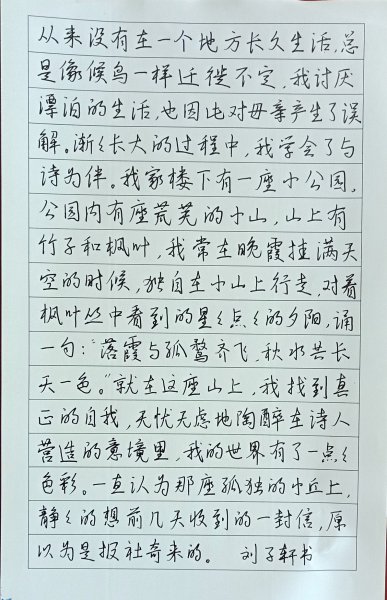 从来没有在一个地方长久生活,总
是像候鸟一样迁徙不定,我讨厌
漂泊的生活,也因此对母亲产生了误
解。渐々长大的过程中,我学会了与
诗为伴。我家楼下有一座小公园,
公园内有座荒芜的小山,山上有
竹子和枫叶,我常在晚霞挂满天
空的时候,独自在小山上行走,对着
枫叶丛中看到的星々点々的夕阳,诵
一句:“落霞与孤鹜齐飞,秋水共长
天一色。”就在这座山上,我找到真
正的自我,无忧无虑地陶醉在诗人
营造的意境里,我的世界有了一点々
色彩。一直认为那座孤独的小丘上,
静々的想前几天收到的一封信,原
以为是报社寄来的。 刘子轩书